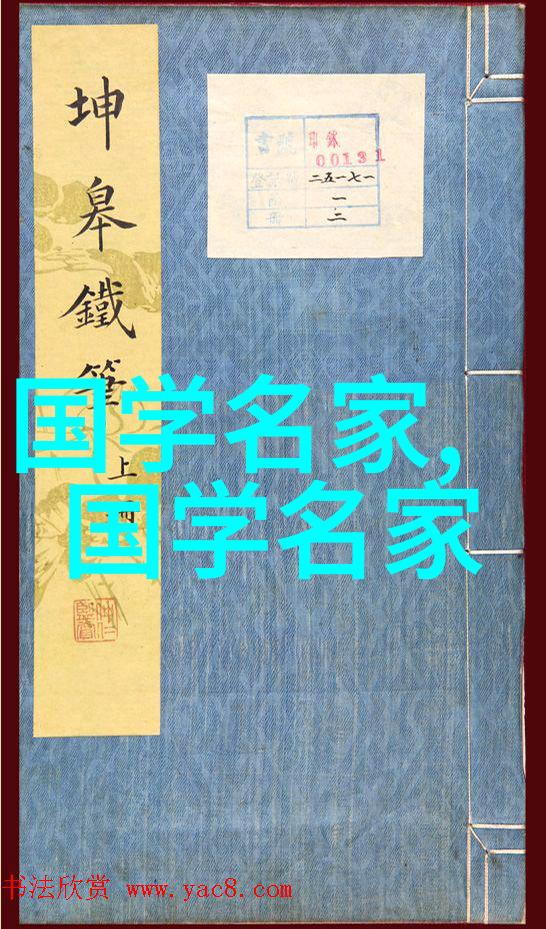 坤皋鐵筆
上冊
書號
00131
二五一七一
一
冊 二
国学名家,
国学名家
书法欣赏 www.yac8.com